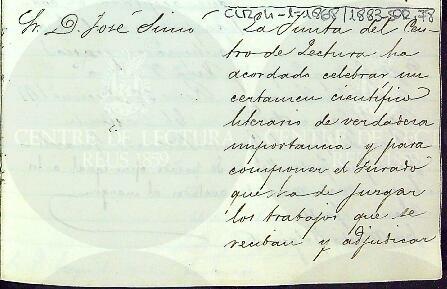 Sr. D. José Simó
La Junta del Cen-
tro de Lectura ha
acordado celebrar un
certamen científico
literario de verdadera
importancia y para
componer el Jurado
que ha de juzgar
los trabajos que se
reciban y adjudicar
CENTRE DE LECTURA
REUS 1859